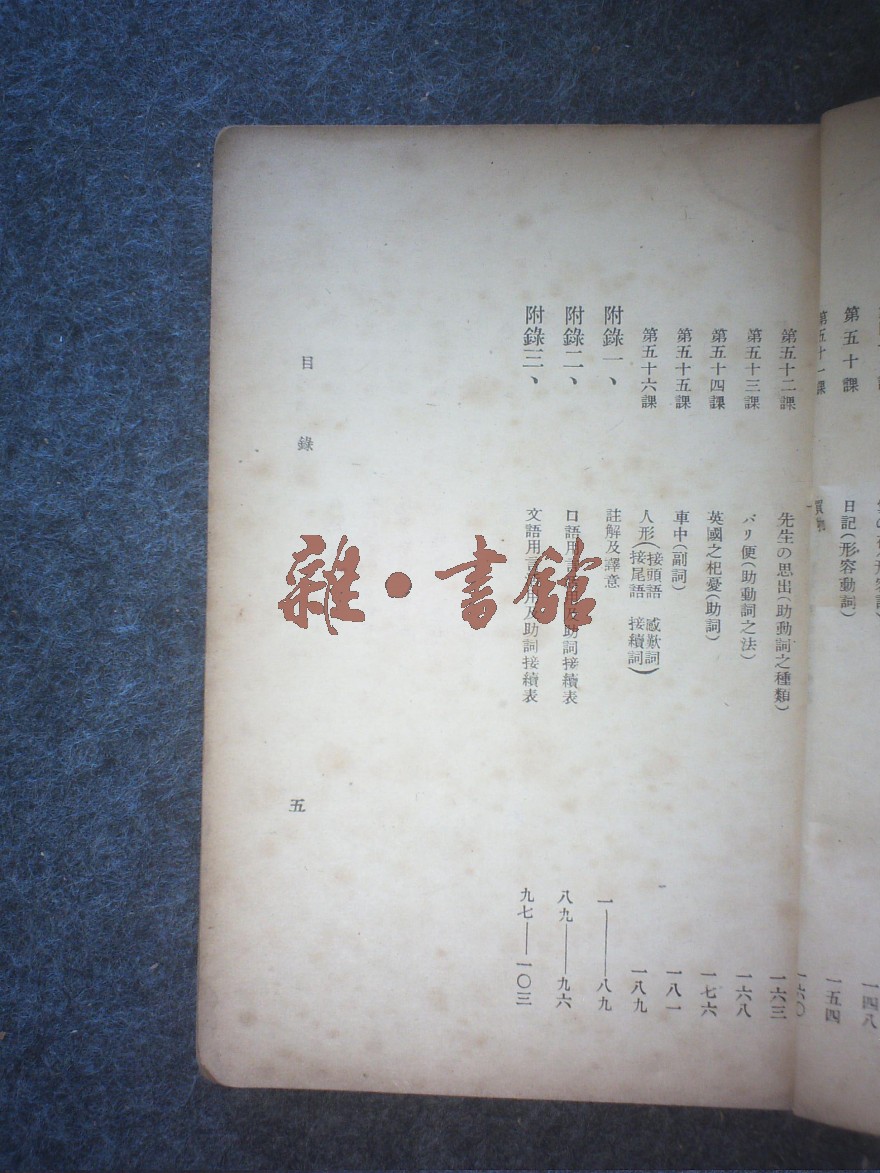 第五十課 日記(形容動詞) 一五四
第五十一課 一六〇
第五十二課 先生の思出(助動詞之種類) 一六三
第五十三課 パリ便(助動詞之法) 一六八
第五十四課 英國之杞憂(助詞) 一七六
第五十五課 車中(副詞) 一八一
第五十六課 人形(接頭語 感歎詞 接尾語 接續詞) 一八九
附錄一、 註解及譯意 一——八九
附錄二、 口語用言 助詞接續表 八九——九六
附錄三、 文語用言 用及助詞接續表 九七——一〇三
目錄
五
雜·書館